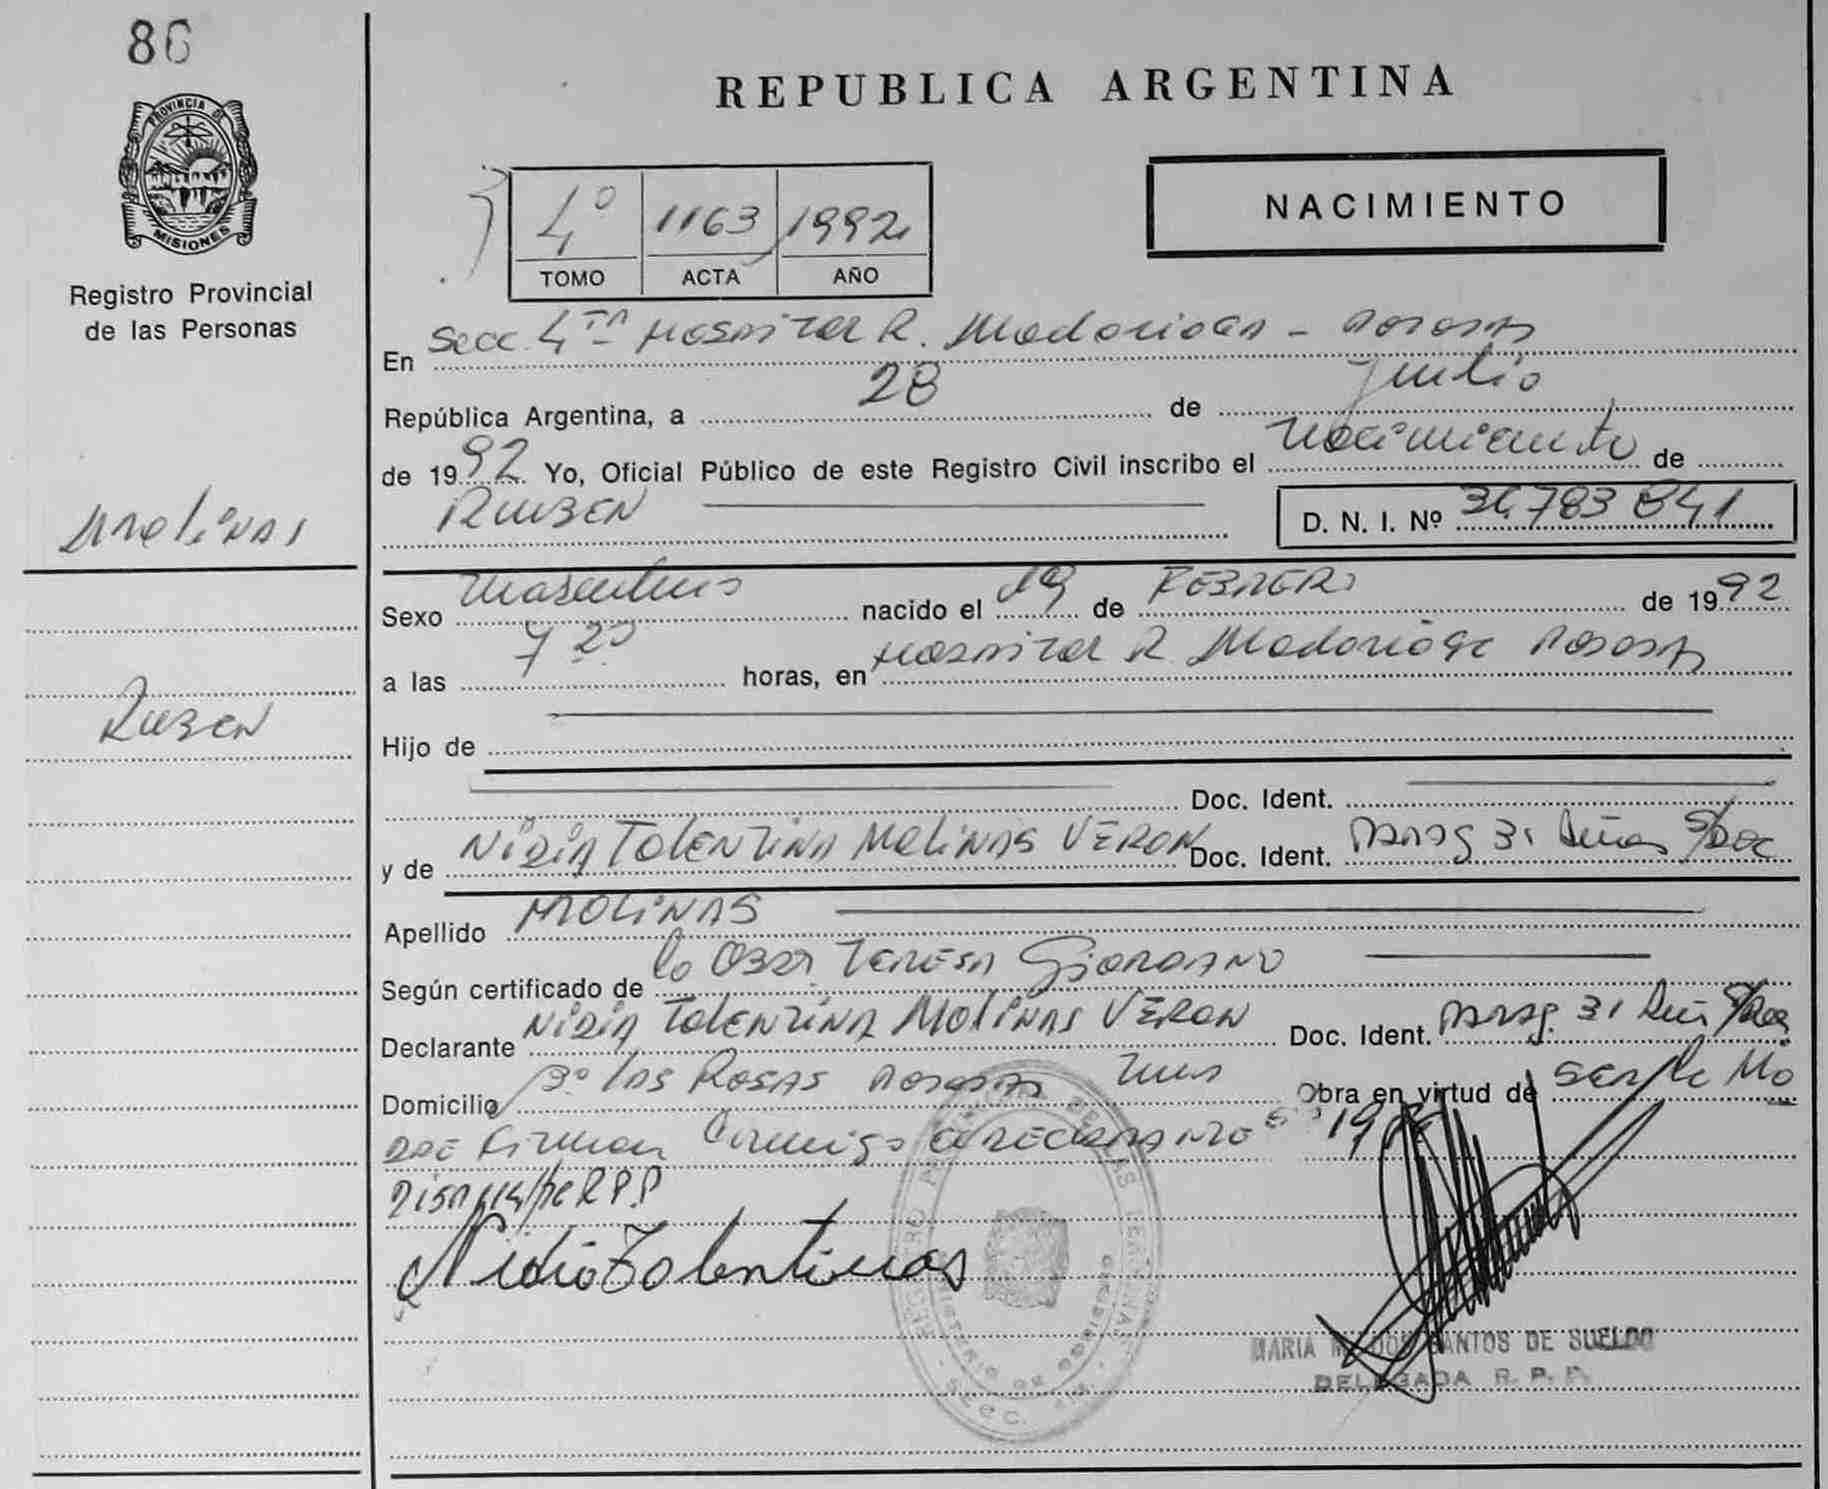 86
PROVINCIA DE
MISIONES
Registro Provincial
de las Personas
Molinas
Ruben
REPUBLICA ARGENTINA
NACIMIENTO
4º 1163 1992
TOMO ACTA AÑO
En Secc. 4ta Hospital R. Madariaga - Posadas
República Argentina, a 28 de Julio
de 1992 Yo, Oficial Público de este Registro Civil inscribo el Nacimiento de
RUBEN D. N. I. Nº 36783841
Sexo Masculino nacido el 19 de FEBRERO de 1992
a las 7 20 horas, en Hospital R. Madariaga Posadas
Hijo de
Doc. Ident.
y de NiDiA TOLENTiNA MOLiNAS VERON Doc. Ident. Parag 31 Años S/Doc
Apellido MOLiNAS
Según certificado de TERESA GiORDANO
Declarante NiDiA TOLENTiNA MOLiNAS VERON Doc. Ident. Parag. 31 Años S/Doc
Domicilio Bº LAS ROSAS Posadas Mnes Obra en virtud de ser la Ma
dre Firman Conmigo
RPP
Nidia Tolentinas
REGISTRO
MINISTERIO DE GOBIERNO
SECC.
MARIA SANTOS DE SUELDO
DELEGADA R. P. P.